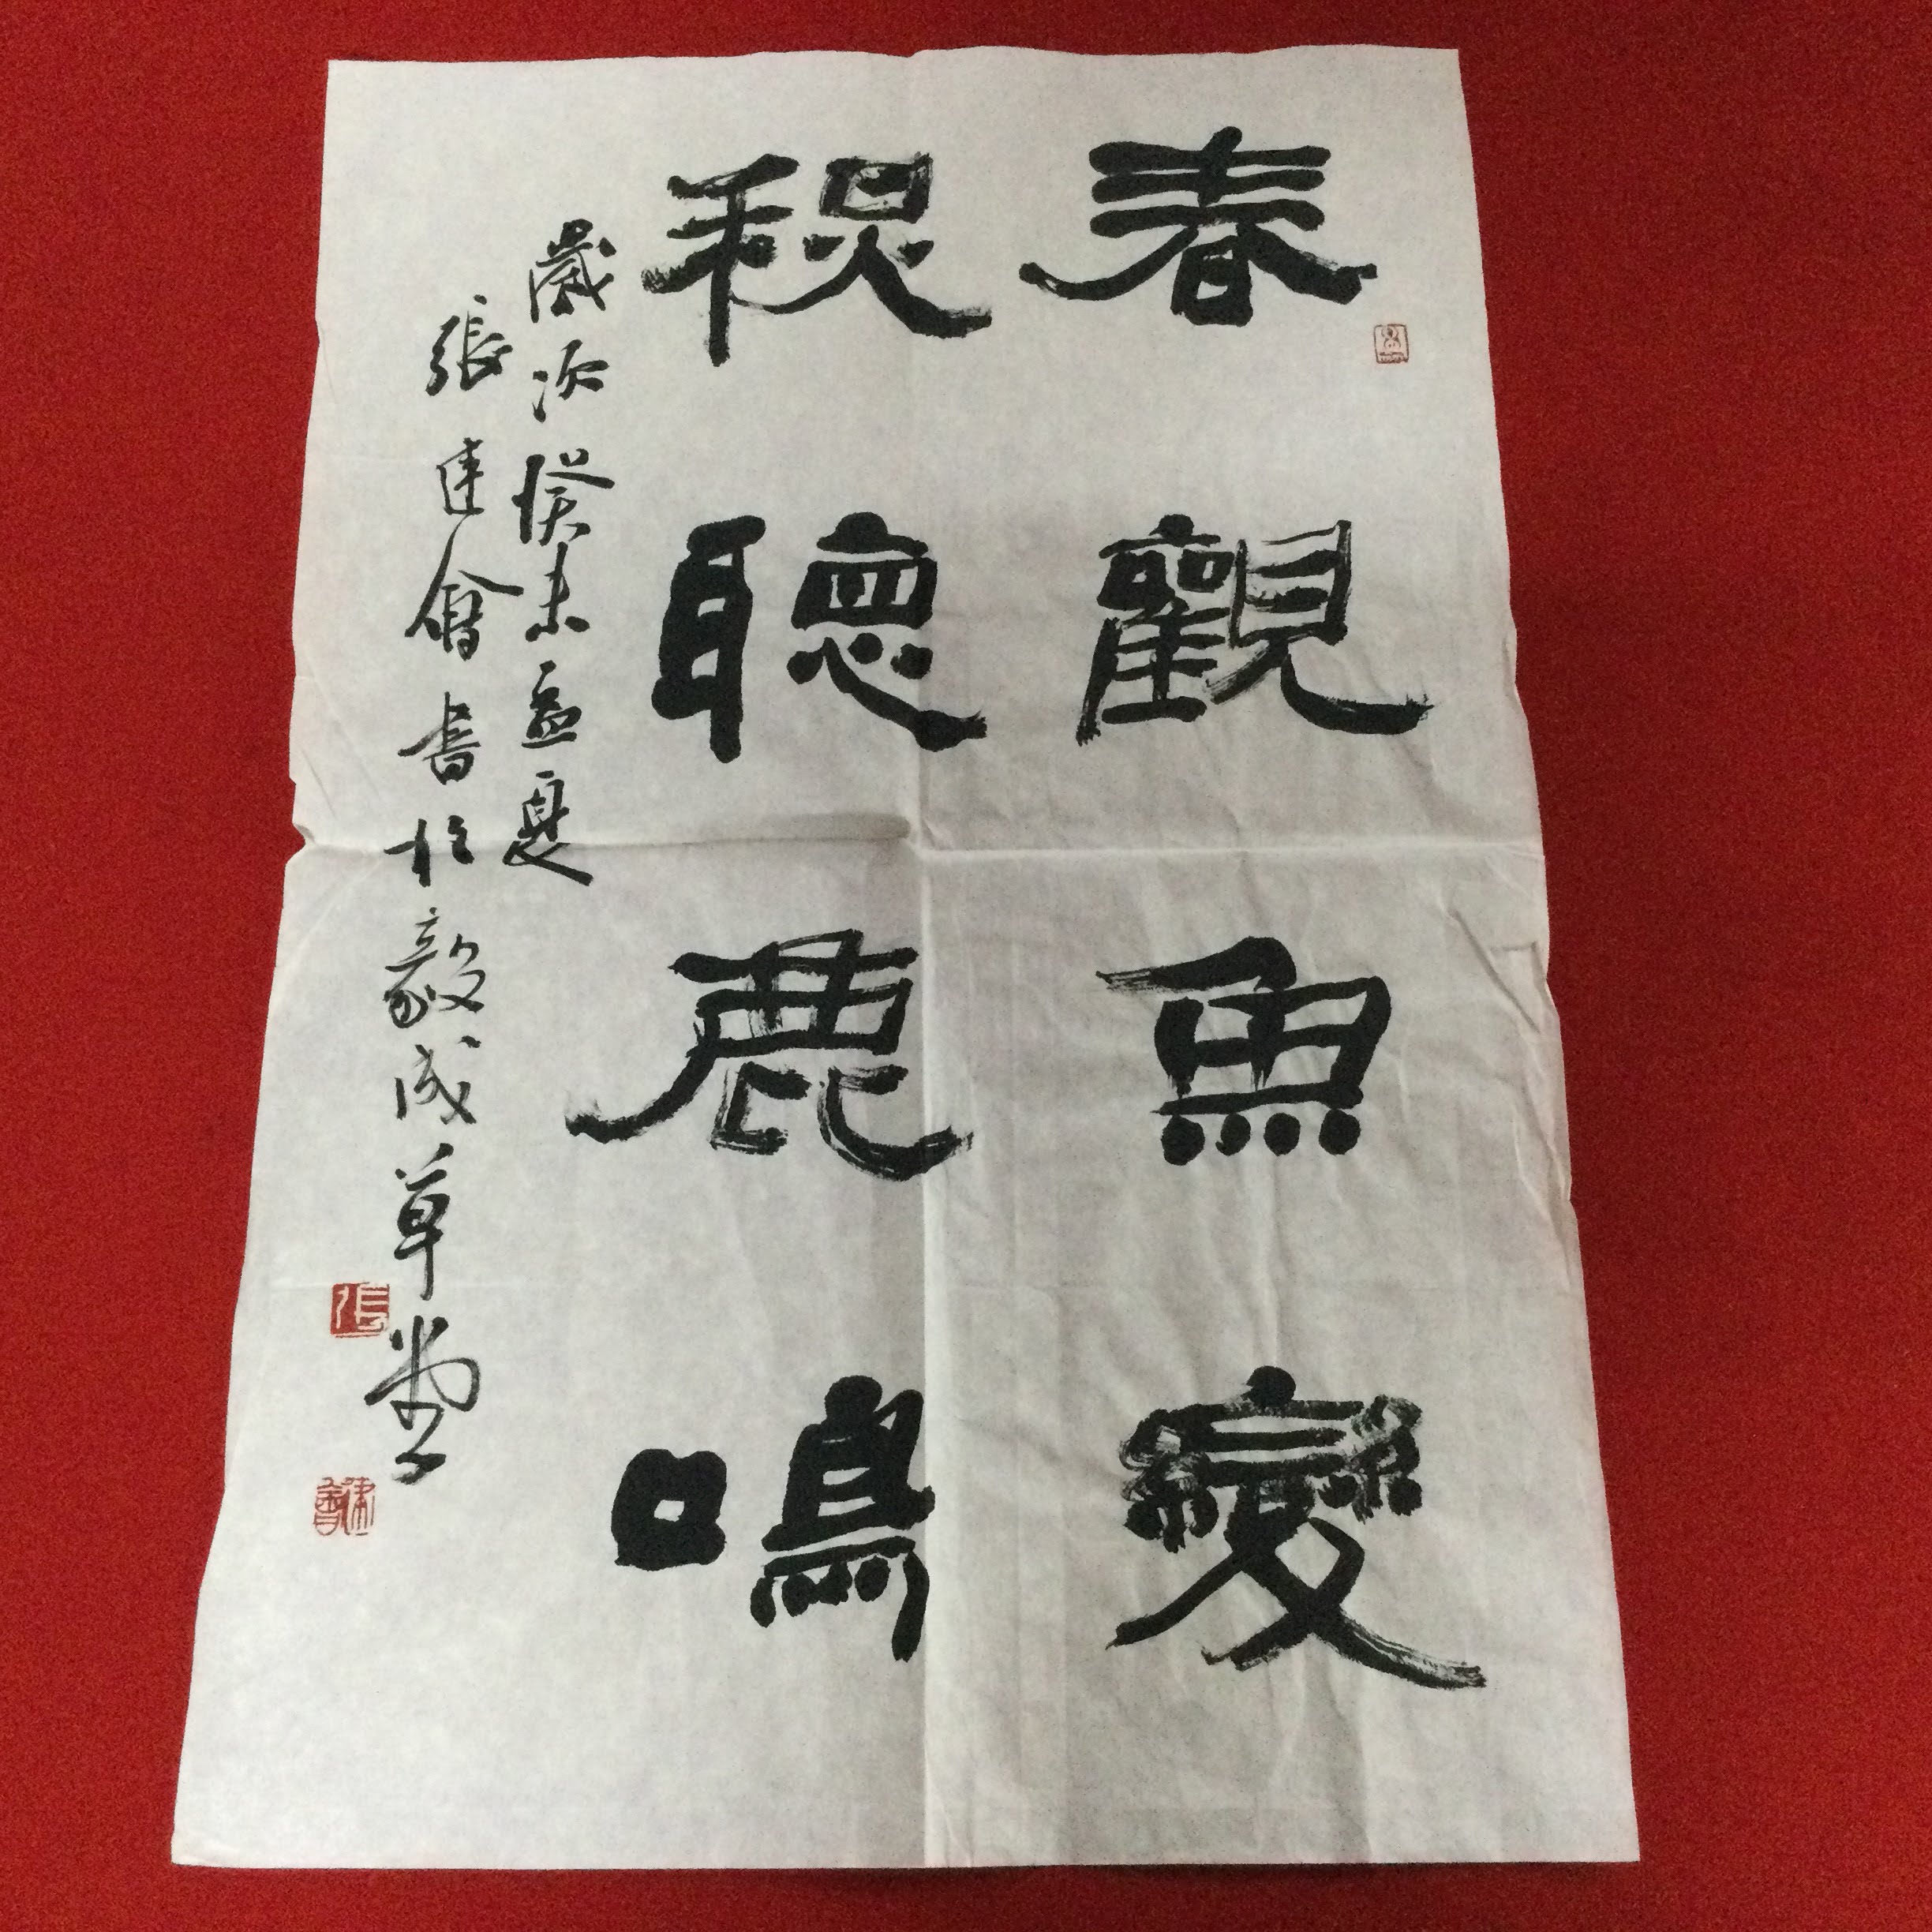 春觀魚變
秋聽鹿鳴
歲次癸未孟夏
張建會書於毅成草堂
張
建會